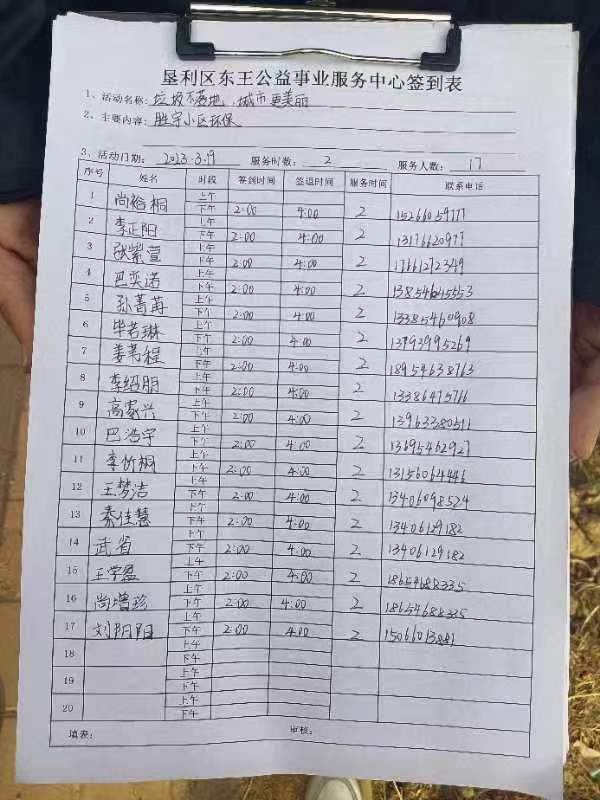 垦利区东王公益事业服务中心签到表
1、活动名称: 垃圾不落地,城市更美丽
2、主要内容: 胜宇小区环保
3、活动日期: 2023.3.19 服务时数: 2 服务人数: 17
序号 姓名 时段 签到时间 签退时间 服务时间 联系电话
1 尚裕桐 上午 下午 2:00 4:00 2
2 李正阳 上午 下午 2:00 4:00 2 13176620977
3 张紫萱 上午 下午 2:00 4:00 2 17661272349
4 巴奕诺 上午 下午 2:00 4:00 2
5 孙菁苒 上午 下午 2:00 4:00 2 13385460908
6 毕若琳 上午 下午 2:00 4:00 2 13793995269
7 姜芮程 上午 下午 2:00 4:00 2 18954638763
8 李绍朋 上午 下午 2:00 4:00 2 13386475766
9 高家兴 上午 下午 2:00 4:00 2 13963380511
10 巴浩宇 上午 下午 2:00 4:00 2 13695462927
11 李忻桐 上午 下午 2:00 4:00 2 13156064446
12 王梦洁 上午 下午 2:00 4:00 2 13406098524
13 秦佳慧 上午 下午 2:00 4:00 2 13406129182
14 武省 上午 下午 2:00 4:00 2 13406129182
15 王学盈 上午 下午 2:00 4:00 2
16 尚增珍 上午 下午 2:00 4:00 2 18654688335
17 刘阴阳 上午 下午 2:00 4:00 2
18 上午 下午
19 上午 下午
20 上午 下午
填表: 审核: